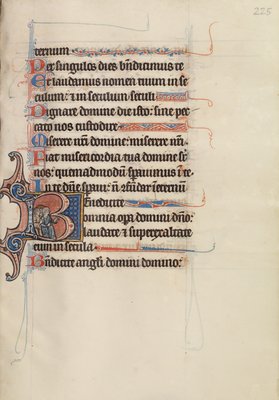 225
ternum
Per singulos dies bn̄dicimus te
Et laudamus nomen tuum in se
culum: ⁊ in seculum seculi
Dignare domine die isto: sine pec
cato nos custodire
Miserere nr̄i domine: miserere nr̄i.
Fiat misericordia tua domine sr̄
nos: quemadmodū sperauimus ī te.
In te dn̄e speraui: nō cōfundar īeternū
Benedicite
omnia opa domini dn̄o:
laudate ⁊ superexaltate
eum in secula
Bn̄dicite angli domini domino: